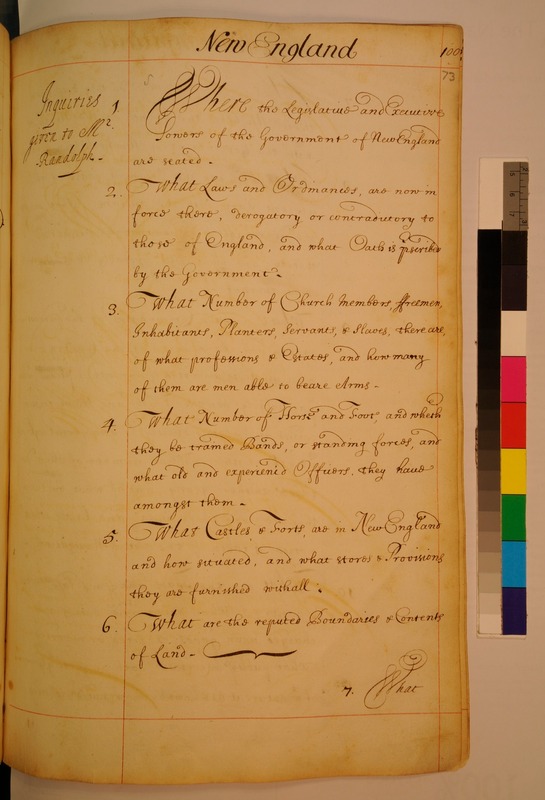 New England
100
73
Inquiries
given to Mr.
Randolph.
1 Where the Legislative and Executive
Powers of the Government of New England
are seated.
2. What Laws and Ordinances, are now in
force there, derogatory or contradutory to
those of England, and what Oath is pscribed
by the Government.
3. What Number of Church members, ffreemen,
Inhabitants, Planters, Servants, & Slaves, there are,
of what professions & Estates, and how many
of them are men able to beare Arms.
4. What Number of Horse and Foot, and wheth
they be trained Bands, or standing forces, and
what old and experienc'd Officers, they have
amongst them.
5. What Castles & Forts, are in New England
and how situated, and what stores & Provisions
they are furnished withall.
6. What are the reputed Boundaries & Contents
of Land.
7. What